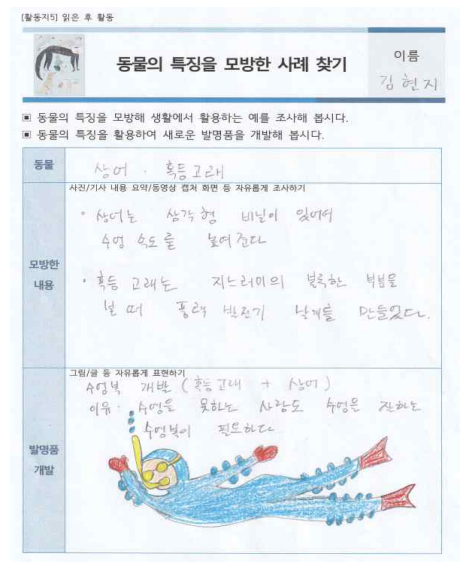 [활동지5] 읽은 후 활동
동물의 특징을 모방한 사례 찾기
이름
김현지
▣ 동물의 특징을 모방해 생활에서 활용하는 예를 조사해 봅시다.
▣ 동물의 특징을 활용하여 새로운 발명품을 개발해 봅시다.
동물
상어 · 혹등고래
사진/기사 내용 요약/동영상 캡처 화면 등 자유롭게 조사하기
모방한
내용
• 상어는 삼각형 비닐이 있어서
수영 속도를 높여준다
• 혹등고래는 지느러미의 볼록한 부분을
본 따 풍력 발전기 날개를 만들었다.
그림/글 등 자유롭게 표현하기
발명품
개발
수영복 개발 (혹등고래 + 상어)
이유 · 수영을 못하는 사람도 수영을 잘하는
수영복이 필요하다